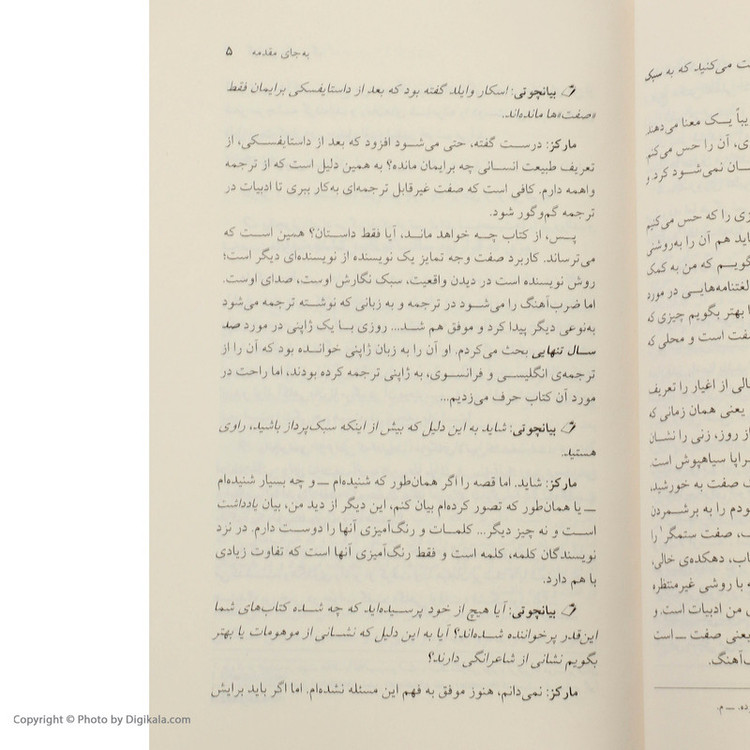 به‌جای مقدمه ۵
بیانچوتی: اسکار وایلد گفته بود که بعد از داستایفسکی برایمان فقط
«صفت»ها مانده‌اند.
مارکز: درست گفته، حتی می‌شود افزود که بعد از داستایفسکی، از
تعریف طبیعت انسانی چه برایمان مانده؟ به همین دلیل است که از ترجمه
واهمه دارم. کافی است که صفت غیرقابل ترجمه‌ای به‌کار ببری تا ادبیات در
ترجمه گم‌وگور شود.
پس، از کتاب چه خواهد ماند، آیا فقط داستان؟ همین است که
می‌ترساند. کاربرد صفت وجه تمایز یک نویسنده از نویسنده‌ای دیگر است؛
روش نویسنده است در دیدن واقعیت، سبک نگارش اوست، صدای اوست.
اما ضرب‌آهنگ را می‌شود در ترجمه و به زبانی که نوشته ترجمه می‌شود
به‌نوعی دیگر پیدا کرد و موفق هم شد... روزی با یک ژاپنی در مورد صد
سال تنهایی بحث می‌کردم. او آن را به زبان ژاپنی خوانده بود که آن را از
ترجمه‌ی انگلیسی و فرانسوی، به ژاپنی ترجمه کرده بودند، اما راحت در
مورد آن کتاب حرف می‌زدیم...
بیانچوتی: شاید به این دلیل که بیش از اینکه سبک‌پرداز باشید، راوی
هستید.
مارکز: شاید. اما قصه را اگر همان‌طور که شنیده‌ام — و چه بسیار شنیده‌ام
— یا همان‌طور که تصور کرده‌ام بیان کنم، این دیگر از دید من، بیان یادداشت
است و نه چیز دیگر... کلمات و رنگ‌آمیزی آنها را دوست دارم. در نزد
نویسندگان کلمه، کلمه است و فقط رنگ‌آمیزی آنها است که تفاوت زیادی
با هم دارد.
بیانچوتی: آیا هیچ از خود پرسیده‌اید که چه شده کتاب‌های شما
این‌قدر پرخواننده شده‌اند؟ آیا به این دلیل که نشانی از موهومات یا بهتر
بگویم نشانی از شاعرانگی دارند؟
مارکز: نمی‌دانم، هنوز موفق به فهم این مسئله نشده‌ام. اما اگر باید برایش
می‌کنید که به سبک
یک معنا می‌دهند
آن را حس می‌کنم
نمی‌شود کرد. و
را که حس می‌کنیم
هم آن را به‌روشنی
که من به کمک
لغتنامه‌هایی در مورد
بهتر بگویم چیزی که
است و محلی که
از اغیار را تعریف
یعنی همان زمانی که
از روز، زنی را نشان
سیاهپوش است.
صفت به خورشید،
را به برشمردن
صفت ستمگر را
دهکده‌ی خالی،
با روشی غیرمنتظره
من ادبیات است. و
یعنی صفت — است
Copyright © Photo by Digikala.com